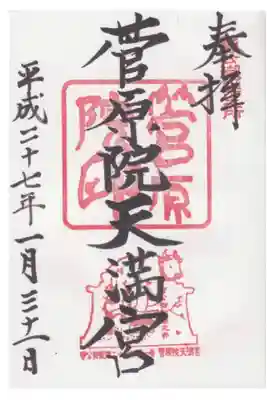 奉拝
菅原院天満宮
平成二十七年一月三十一日
菅原
院印